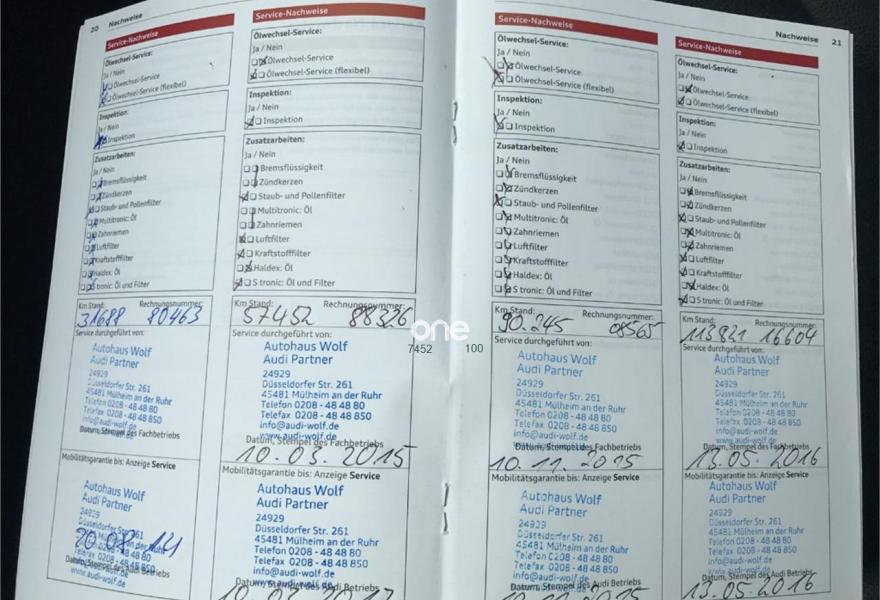 20 Nachweise
Service-Nachweise
Ölwechsel-Service:
Ja / Nein
Ölwechsel-Service
Ölwechsel-Service (flexibel)
Inspektion:
Ja / Nein
Inspektion
Zusatzarbeiten:
Ja / Nein
Bremsflüssigkeit
Zündkerzen
Staub- und Pollenfilter
Multitronic: Öl
Zahnriemen
Luftfilter
Kraftstofffilter
Haldex: Öl
S tronic: Öl und Filter
Km Stand: Rechnungsnummer:
31688 80463
Service durchgeführt von:
Autohaus Wolf
Audi Partner
24929
Düsseldorfer Str. 261
45481 Mülheim an der Ruhr
Telefon 0208 - 48 48 80
Telefax 0208 - 48 48 850
info@audi-wolf.de
Datum, Stempel des Fachbetriebs
Mobilitätsgarantie bis: Anzeige Service
Autohaus Wolf
Audi Partner
24929
Düsseldorfer Str. 261
www.audi-wolf.de
Service-Nachweise
Ölwechsel-Service:
Ja / Nein
Ölwechsel-Service
Ölwechsel-Service (flexibel)
Inspektion:
Ja / Nein
Inspektion
Zusatzarbeiten:
Ja / Nein
Bremsflüssigkeit
Zündkerzen
Staub- und Pollenfilter
Multitronic: Öl
Zahnriemen
Luftfilter
Kraftstofffilter
Haldex: Öl
S tronic: Öl und Filter
Km Stand: Rechnungsnummer:
57452 88326
Service durchgeführt von:
Autohaus Wolf
Audi Partner
24929
Düsseldorfer Str. 261
45481 Mülheim an der Ruhr
Telefon 0208 - 48 48 80
Telefax 0208 - 48 48 850
info@audi-wolf.de
www.audi-wolf.de
Datum, Stempel des Fachbetriebs
10.03.2015
Mobilitätsgarantie bis: Anzeige Service
Autohaus Wolf
Audi Partner
24929
Düsseldorfer Str. 261
45481 Mülheim an der Ruhr
Telefon 0208 - 48 48 80
Telefax 0208 - 48 48 850
info@audi-wolf.de
Datum, Stempel des Audi Betriebs
one
7452 100
Service-Nachweise
Ölwechsel-Service:
Ja / Nein
Ölwechsel-Service
Ölwechsel-Service (flexibel)
Inspektion:
Ja / Nein
Inspektion
Zusatzarbeiten:
Ja / Nein
Bremsflüssigkeit
Zündkerzen
Staub- und Pollenfilter
Multitronic: Öl
Zahnriemen
Luftfilter
Kraftstofffilter
Haldex: Öl
S tronic: Öl und Filter
Km Stand: Rechnungsnummer:
90.245 08565
Service durchgeführt von:
Autohaus Wolf
Audi Partner
24929
Düsseldorfer Str. 261
45481 Mülheim an der Ruhr
Telefon 0208 - 48 48 80
Telefax 0208 - 48 48 850
info@audi-wolf.de
Datum, Stempel des Fachbetriebs
10.11.2015
Mobilitätsgarantie bis: Anzeige Service
Autohaus Wolf
Audi Partner
24929
Düsseldorfer Str. 261
45481 Mülheim an der Ruhr
Telefon 0208 - 48 48 80
Telefax 0208 - 48 48 850
info@audi-wolf.de
Datum, Stempel des Audi Betriebs
Nachweise 21
Service-Nachweise
Ölwechsel-Service:
Ja / Nein
Ölwechsel-Service
Ölwechsel-Service (flexibel)
Inspektion:
Ja / Nein
Inspektion
Zusatzarbeiten:
Ja / Nein
Bremsflüssigkeit
Zündkerzen
Staub- und Pollenfilter
Multitronic: Öl
Zahnriemen
Luftfilter
Kraftstofffilter
Haldex: Öl
S tronic: Öl und Filter
Km Stand: Rechnungsnummer:
113821 16604
Service durchgeführt von:
Autohaus Wolf
Audi Partner
24929
Düsseldorfer Str. 261
45481 Mülheim an der Ruhr
Telefon 0208 - 48 48 80
Telefax 0208 - 48 48 850
info@audi-wolf.de
www.audi-wolf.de
Datum, Stempel des Fachbetriebs
13.05.2016
Mobilitätsgarantie bis: Anzeige Service
Autohaus Wolf
Audi Partner
24929
Düsseldorfer Str. 261
45481 Mülheim an der Ruhr
Telefon 0208 - 48 48 80
Telefax 0208 - 48 48 850
info@audi-wolf.de
Datum, Stempel des Audi Betriebs
13.05.2016